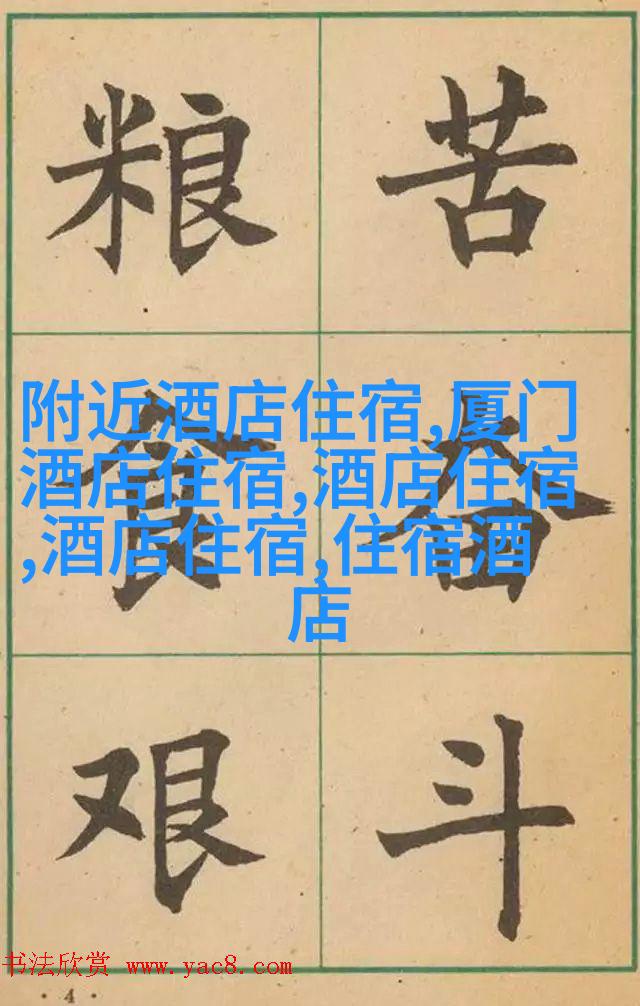 粮食艰
苦奋斗
附近酒店住宿,厦门
酒店住宿,酒店住宿
,酒店住宿,住宿酒
店
书法欣赏 www.yac8.com
·4·